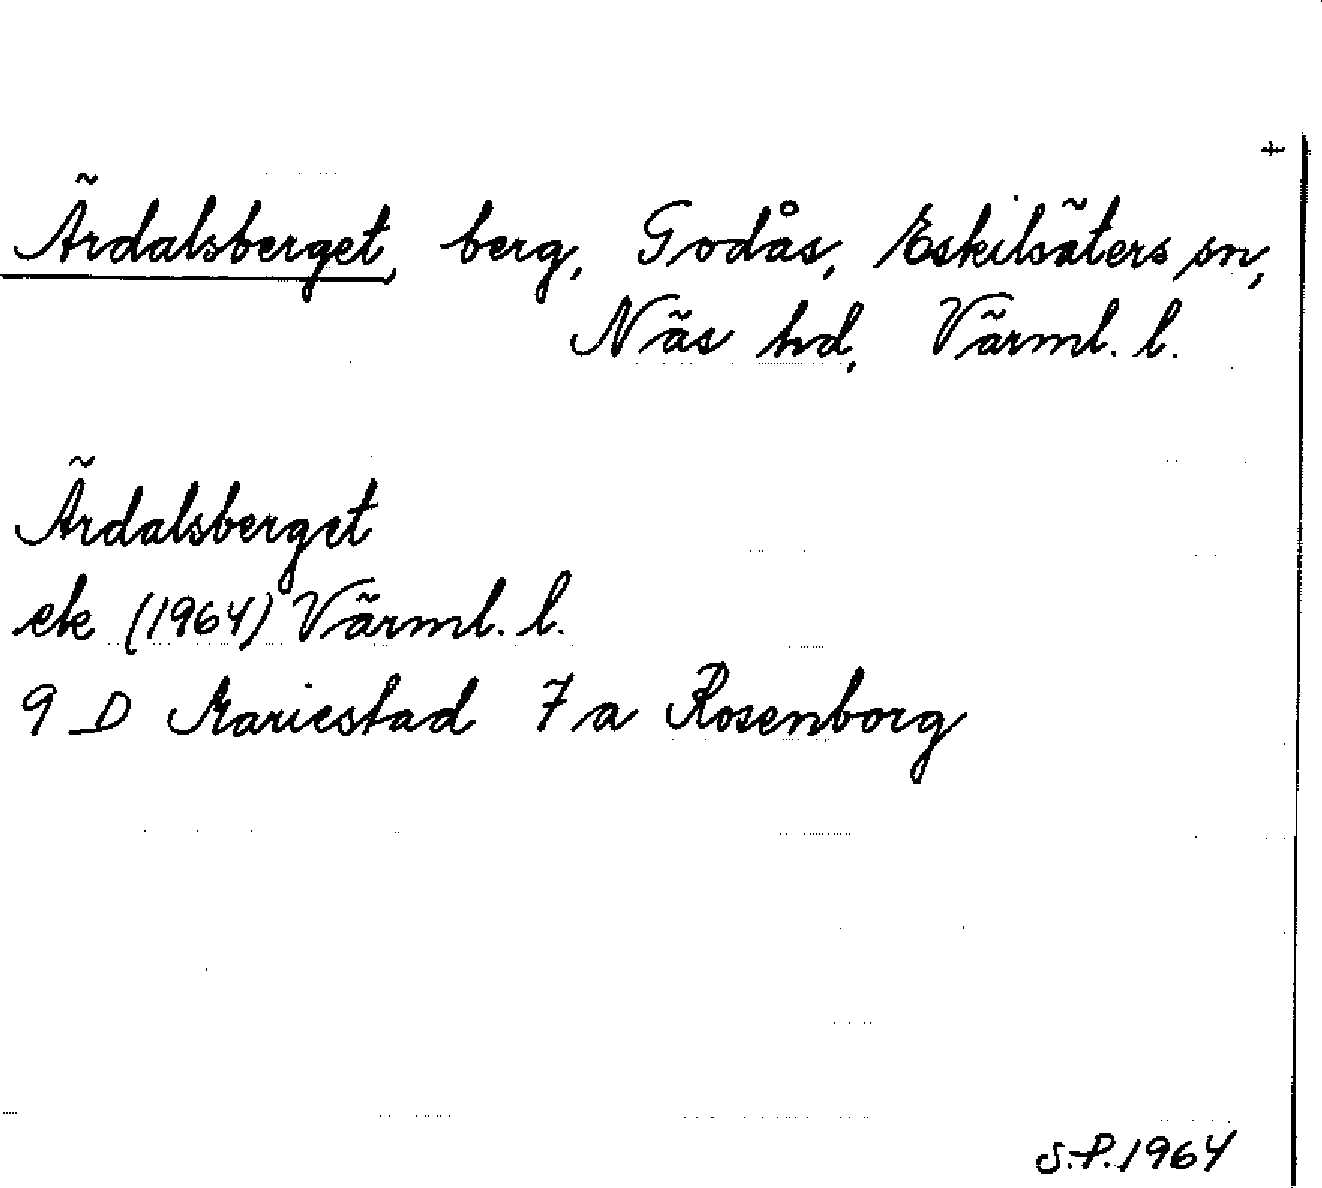 +
Ärdalsberget, berg, Godås, Eskilsäters sn,
Näs hd, Värml. l.
Ärdalsberget
ek (1964) Värml. l.
9 D Mariestad 7 a Rosenborg
S.P. 1964